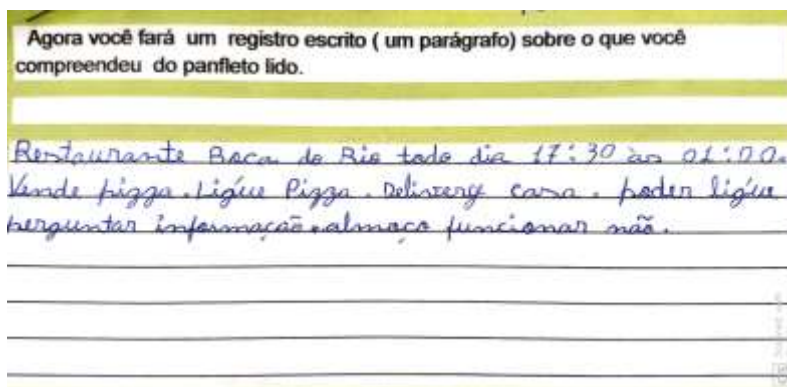 Agora você fará um registro escrito ( um parágrafo) sobre o que você
compreendeu do panfleto lido.
Restaurante Boca do Rio todo dia 17:30 às 01:00.
Vende pizza. Ligue Pizza. Delivery casa. poder ligue
perguntar informação. almoço funcionar não.